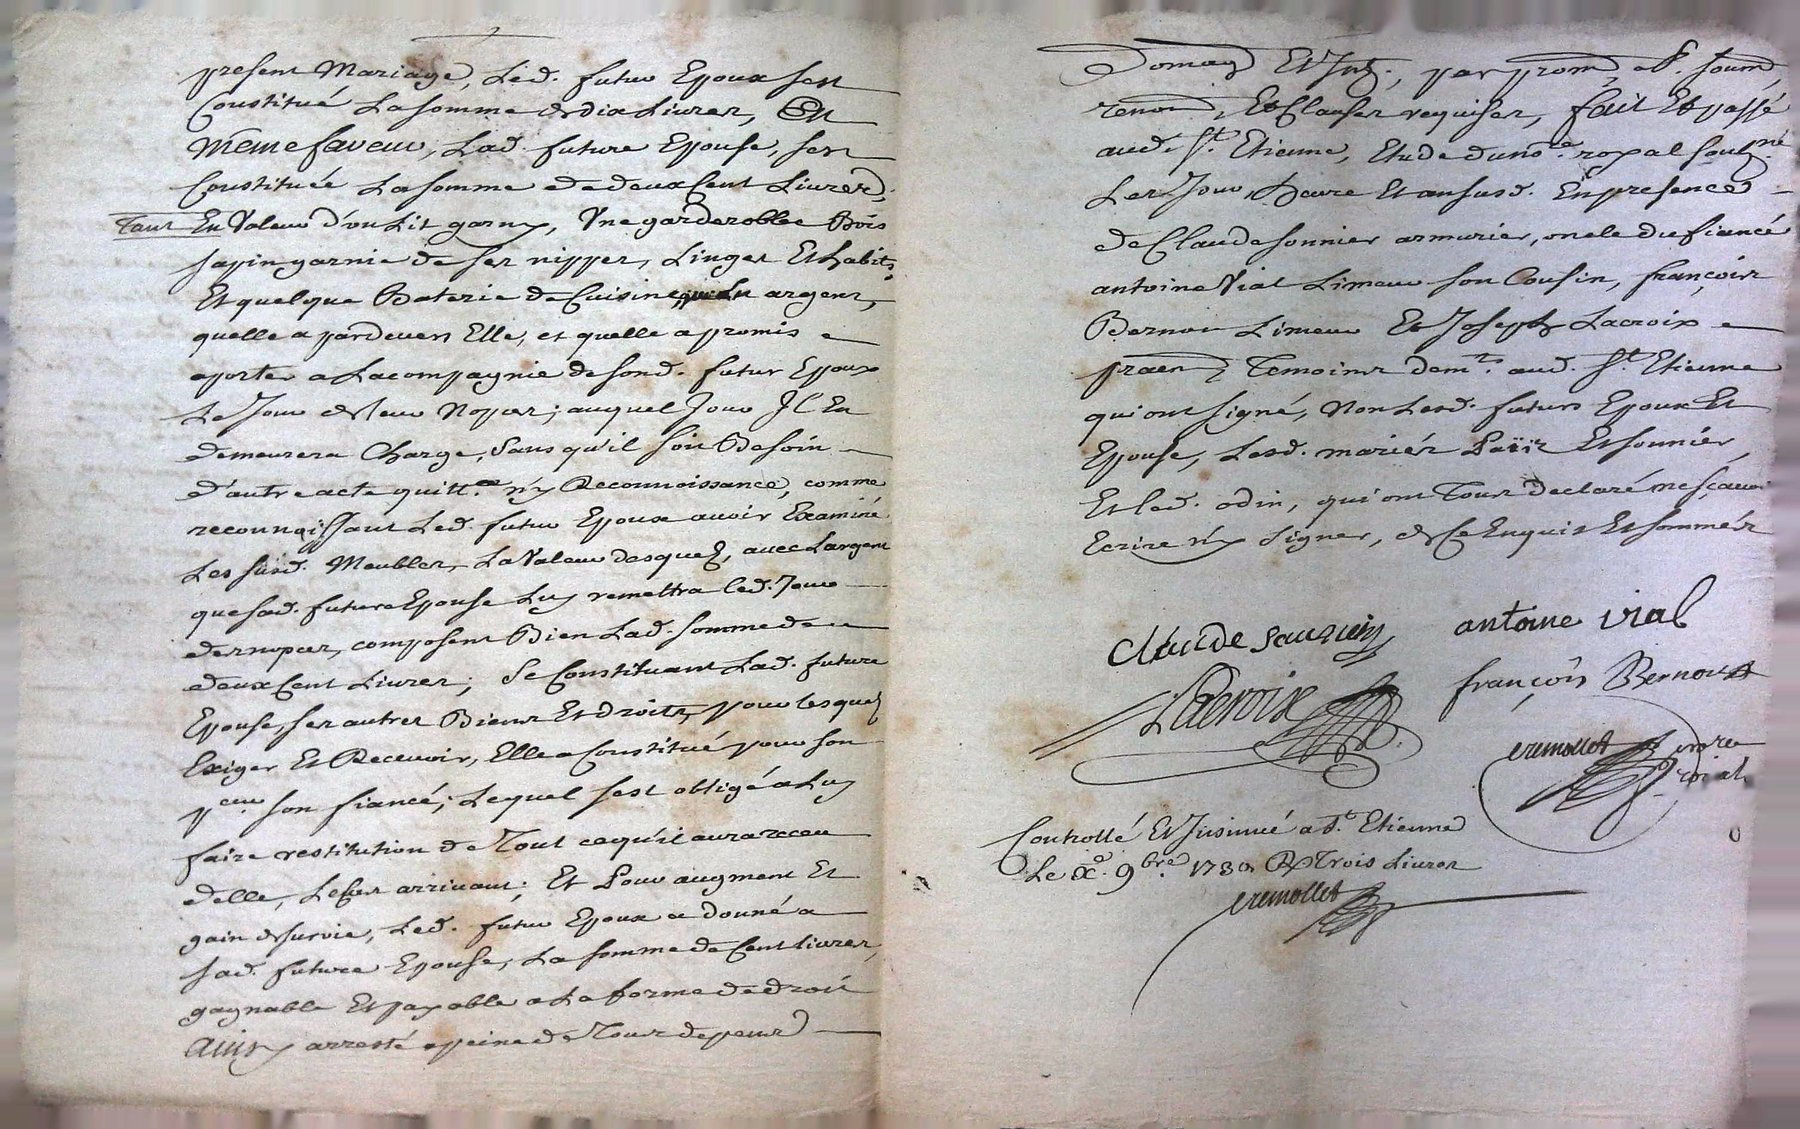 present Mariage, Led. futur Epoux sest
Constitué La somme de dix Livres, Et
Même faveur, Lad. future Epouse, sest
Constituée La somme de deux Cent Livres,
Tant En Valeur d'un Lit garny, Une garderobbe Bois
sapin garnie de ses nippes, Linges Et habits,
Et quelque Baterie de Cuisine, argent,
quelle a pardevers Elle, et quelle a promis
aporter a La compagnie de sond. futur Epoux
Le Jour de leur Nopces; auquel Jour Il En
demeurera Charge, sans qu'il soit Besoin
d'autre acte quitt.ce n'y Reconnoissance, comme
reconnoissant Led. futur Epoux avoir Examiné
Les susd. Meubles, La Valeur desquels, avec Largent
que sad. future Epouse Luy remettra led. Jour
de nopces, composent Bien Lad. somme de
deux Cent Livres; Se Constituant Lad. future
Epouse, ses autres Biens Et droits, pour lesquels
Exiger Et Recevoir, Elle a Constitué pour son
p.eur son fiancé; Lequel sest obligé a Luy
faire restitution de Tout ce qu'il aura receu
delle, Le Cas arrivant; Et Pour augment Et
gain de survie, Led. futur Epoux a donné a
sad. future Epouse, La somme de Cent livres,
gagnable Et payable a La forme de droit
Ainsy arresté a peine de Tous depens
Domag Et Int., par prom, a P. soum,
renon, Et Clauses requises, fait Et passé
aud. St. Etienne, Etude du no.re royal soubsné
Les Jour, heure Et an susd. En presence
de Claude sonnier armurier, oncle du fiancé
antoine Vial Limeur son Cousin, françois
Bernou Limeur Et Joseph Lacroix
praen Temoins dem.ts aud. St. Etienne
qui ont signé, Non Lesd. futurs Epoux Et
Epouse, Lesd. mariés Et sonnier
Et led. odin, qui ont Tous declaré ne sçavoir
Ecrire n'y signer, de Ce Enquis Et sommés
Claude antoine vial
Lacroix françois Bernou
cremollet no.re
roial
Controllé Et Insinué a St. Etienne
Le 9bre. 1730 Trois Livres
cremollet